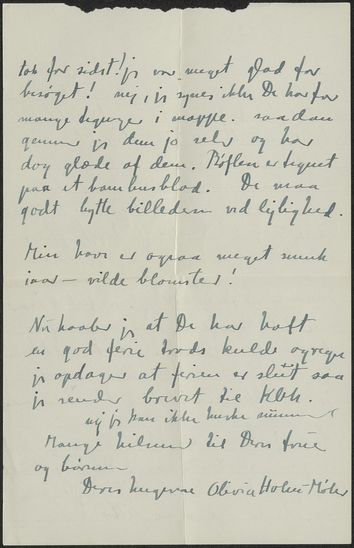 tak for sidst! jeg var meget glad for
besøget! nej, jeg synes ikke De har for
mange tegninger i mappe. saadan
gemmer jeg dem jo selv og har
dog glæde af dem. Bøflen er tegnet
paa et bambusblad. De maa
godt bytte billederne ved lejlighed.
Min have er ogsaa meget smuk
iaar – vilde blomster!
Nu haaber jeg at De har haft
en god ferie trods kulde og regn
jeg opdager at ferien er slut saa
jeg sender brevet til Kbh.
nej jeg kan ikke huske
Mange hilsner til Deres frue
og børnene
Deres hengivne Olivia Holm-Møller